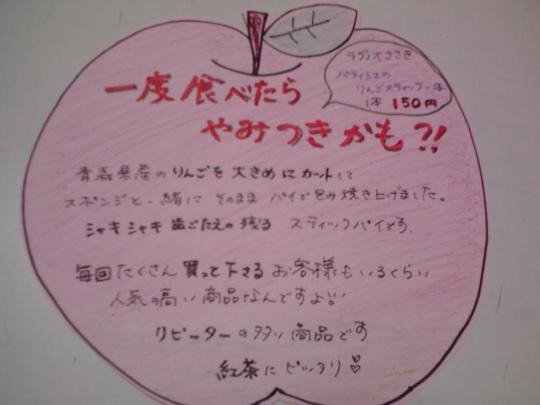 一度食べたら
やみつきかも?!
ラグノオささき
パティシエの
りんごスティック
1本 150円
青森県産のりんごを大きめにカットして
スポンジと一緒にそのままパイで包み焼き上げました。
シャキシャキ歯ごたえの残る スティックパイです。
毎回たくさん買って下さるお客様もいるくらい
人気の高い商品なんですよ!!
リピーターの多い商品です
紅茶にピッタリ